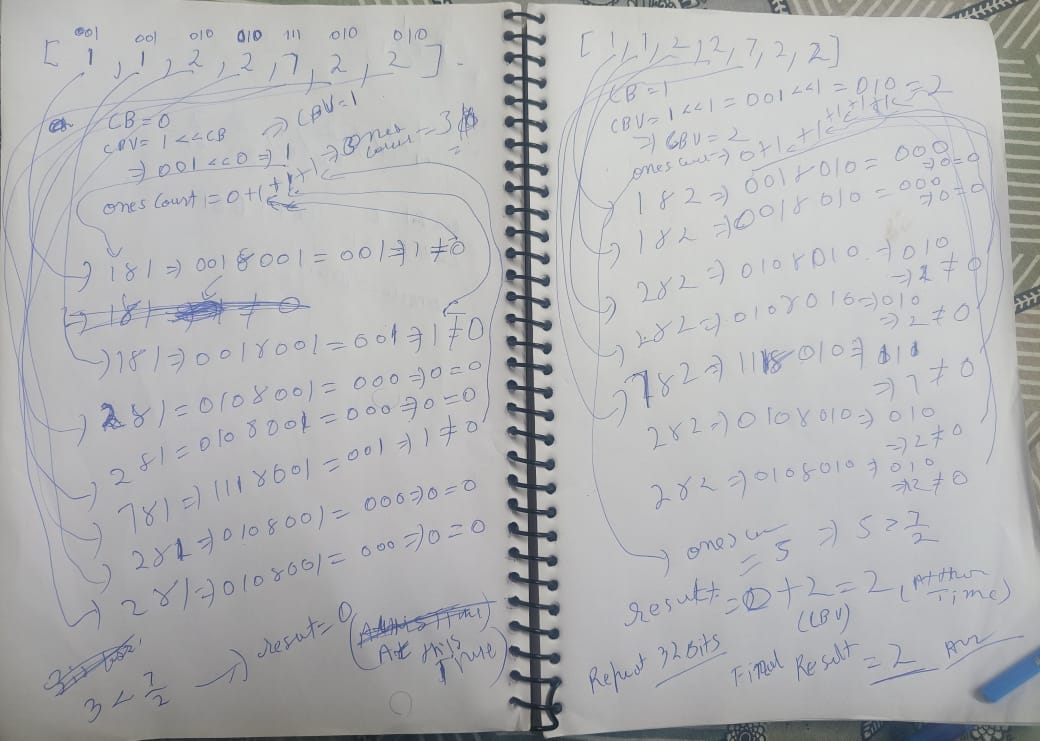 001 001 010 010 111 010 010
[ 1 , 1 , 2 , 2 , 7 , 2 , 2 ] .
CB = 0
CBV = 1 << CB ⇒ CBV = 1
⇒ 001 << 0 ⇒ 1
ones Count = 0 + 1 + 1 + 1 ⇒ ones count = 3
1 & 1 ⇒ 001 & 001 = 001 ⇒ 1 ≠ 0
1 & 1 ⇒ 001 & 001 = 001 ⇒ 1 ≠ 0
2 & 1 = 010 & 001 = 000 ⇒ 0 = 0
2 & 1 = 010 & 001 = 000 ⇒ 0 = 0
7 & 1 ⇒ 111 & 001 = 001 ⇒ 1 ≠ 0
2 & 1 ⇒ 010 & 001 = 000 ⇒ 0 = 0
2 & 1 ⇒ 010 & 001 = 000 ⇒ 0 = 0
3 < 7/2 → result = 0 (At this Time)
[ 1, 1, 2, 2, 7, 2, 2 ]
CB = 1
CBV = 1 << 1 = 001 << 1 = 010 = 2
⇒ CBV = 2
ones cou ⇒ 0 + 1 + 1 + 1 + 1 + 1
1 & 2 ⇒ 001 & 010 = 000
⇒ 0 = 0
1 & 2 ⇒ 001 & 010 = 000
⇒ 0 = 0
2 & 2 ⇒ 010 & 010 ⇒ 010
⇒ 2 ≠ 0
2 & 2 ⇒ 010 & 010 ⇒ 010
⇒ 2 ≠ 0
7 & 2 ⇒ 111 & 010 ⇒ 111
⇒ 7 ≠ 0
2 & 2 ⇒ 010 & 010 ⇒ 010
⇒ 2 ≠ 0
2 & 2 ⇒ 010 & 010 ⇒ 010
⇒ 2 ≠ 0
ones cu
= 5 ⇒ 5 > 7/2
result = 0 + 2 = 2 (At this Time)
(CBV)
Repeat 32 Bits
Final Result = 2 Ans